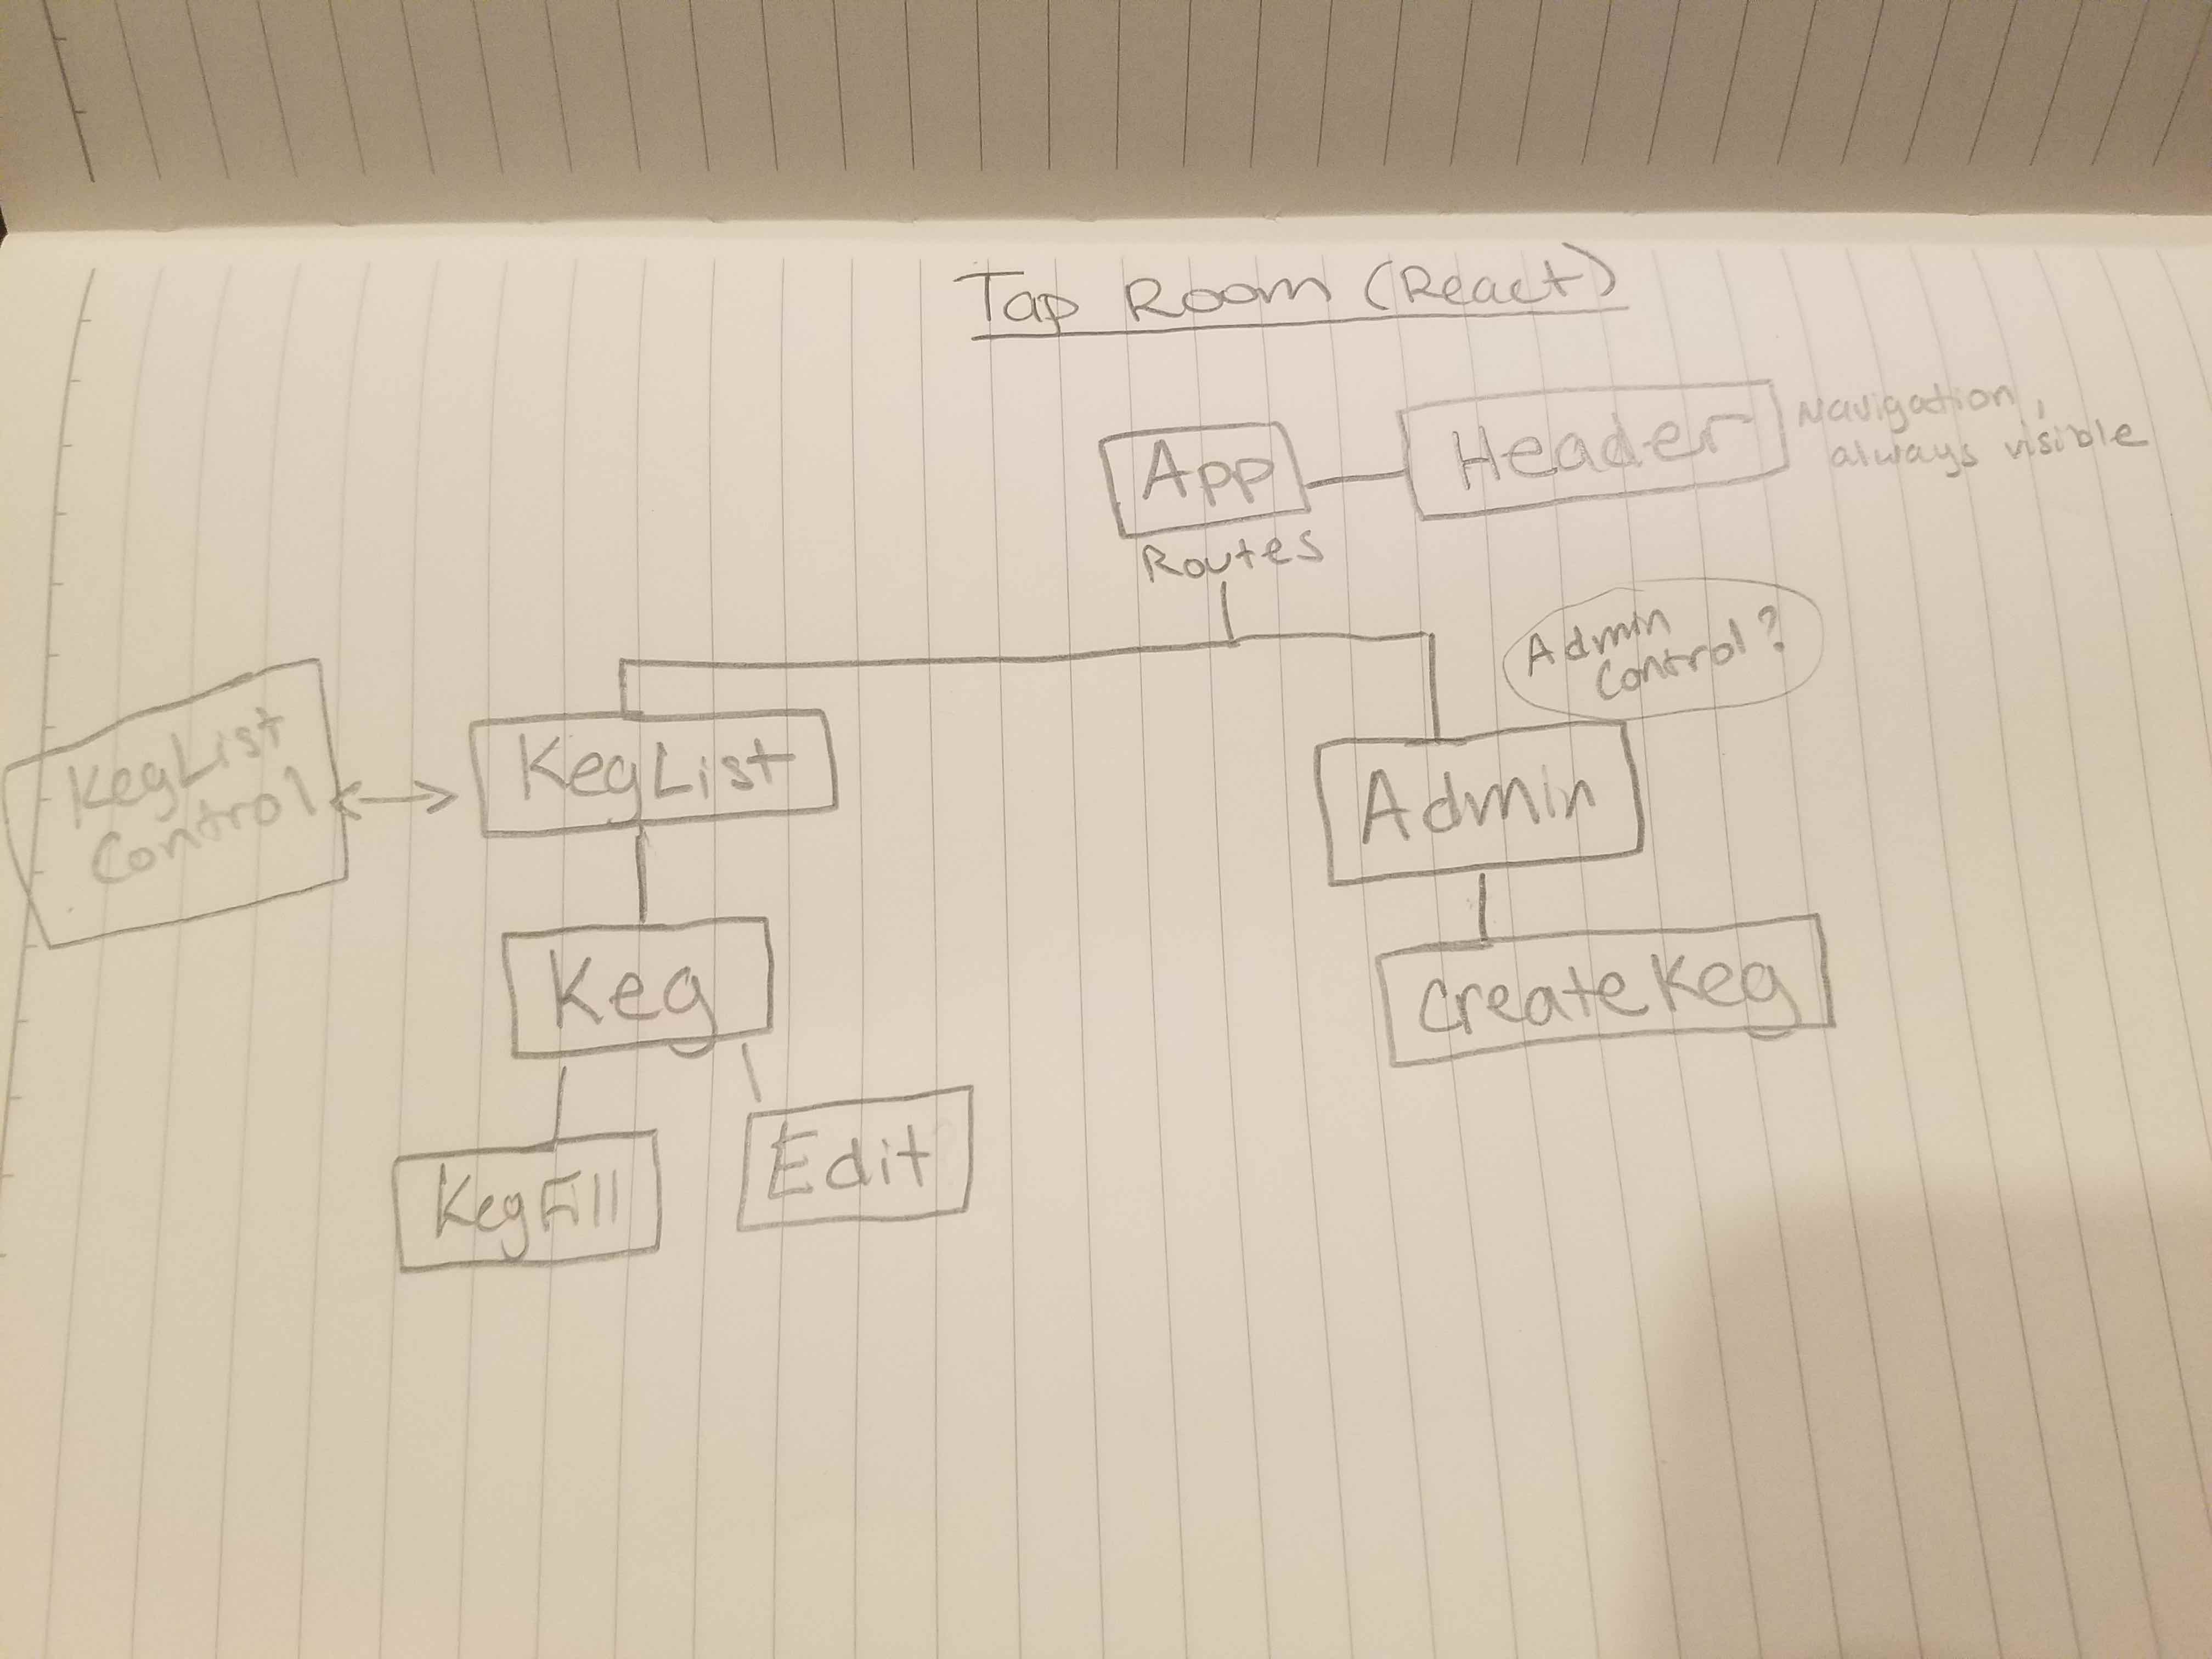 Tap Room (React)
App
Header
Navigation,
always visible
Routes
Admin
Control?
KegList
Control
KegList
Admin
Keg
CreateKeg
KegFill
Edit